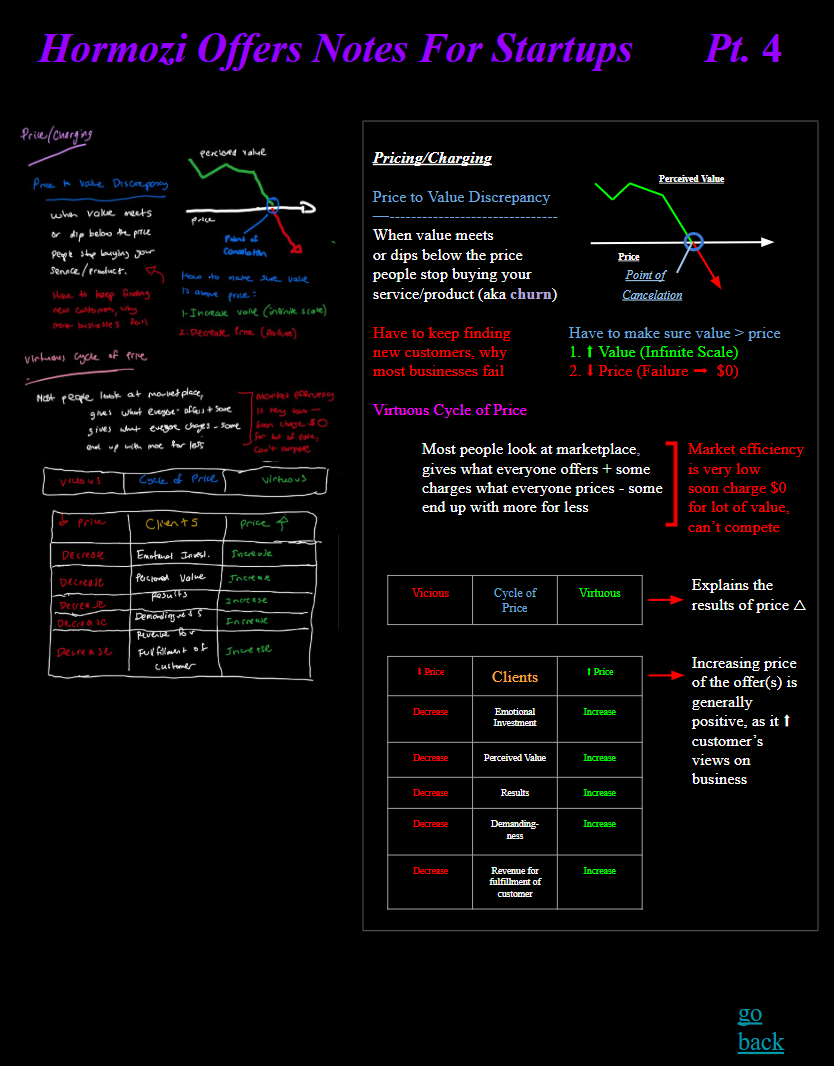 Hormozi Offers Notes For Startups Pt. 4
Price/Charging
Price to Value Discrepancy
when value meets
or dip below the price
people stop buying your
service/product.
Have to keep finding
new customers, why
most businesses fail
percieved value
price
Point of
Cancelation
How to make sure value
is above price:
1. Increase value (infinite scale)
2. Decrease Price (failure)
Virtuous cycle of price
Most people look at marketplace,
gives what everyone offers + some
gives what everyone charges - some
end up with more for less
market efficiency
is very low
soon charge $0
for lot of value,
can't compete
vicious Cycle of Price virtuous
↓ Price Clients Price ↑
Decrease Emotional Invest. Increase
Decrease Percieved Value Increase
Decrease Results Increase
Decrease Demandingness Increase
Decrease Revenue for Increase
Fulfillment of
customer
Pricing/Charging
Price to Value Discrepancy
—------------------------------
When value meets
or dips below the price
people stop buying your
service/product (aka churn)
Perceived Value
Price
Point of
Cancelation
Have to keep finding
new customers, why
most businesses fail
Have to make sure value > price
1. ⬆ Value (Infinite Scale)
2. ⬇ Price (Failure ➡ $0)
Virtuous Cycle of Price
Most people look at marketplace,
gives what everyone offers + some
charges what everyone prices - some
end up with more for less
Market efficiency
is very low
soon charge $0
for lot of value,
can't compete
Vicious Cycle of Virtuous
Price
Explains the
results of price △
⬇ Price Clients ⬆ Price
Decrease Emotional Increase
Investment
Decrease Perceived Value Increase
Decrease Results Increase
Decrease Demanding- Increase
ness
Decrease Revenue for Increase
fulfillment of
customer
Increasing price
of the offer(s) is
generally
positive, as it ⬆
customer's
views on
business
go
back